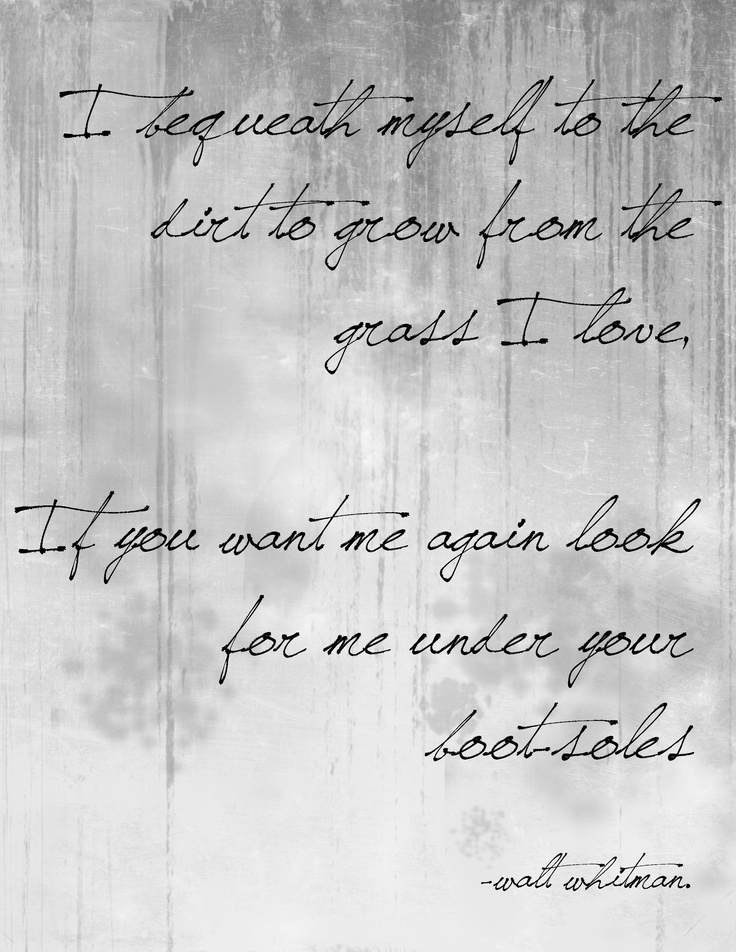 I bequeath myself to the
dirt to grow from the
grass I love,
If you want me again look
for me under your
boot-soles
-walt whitman.